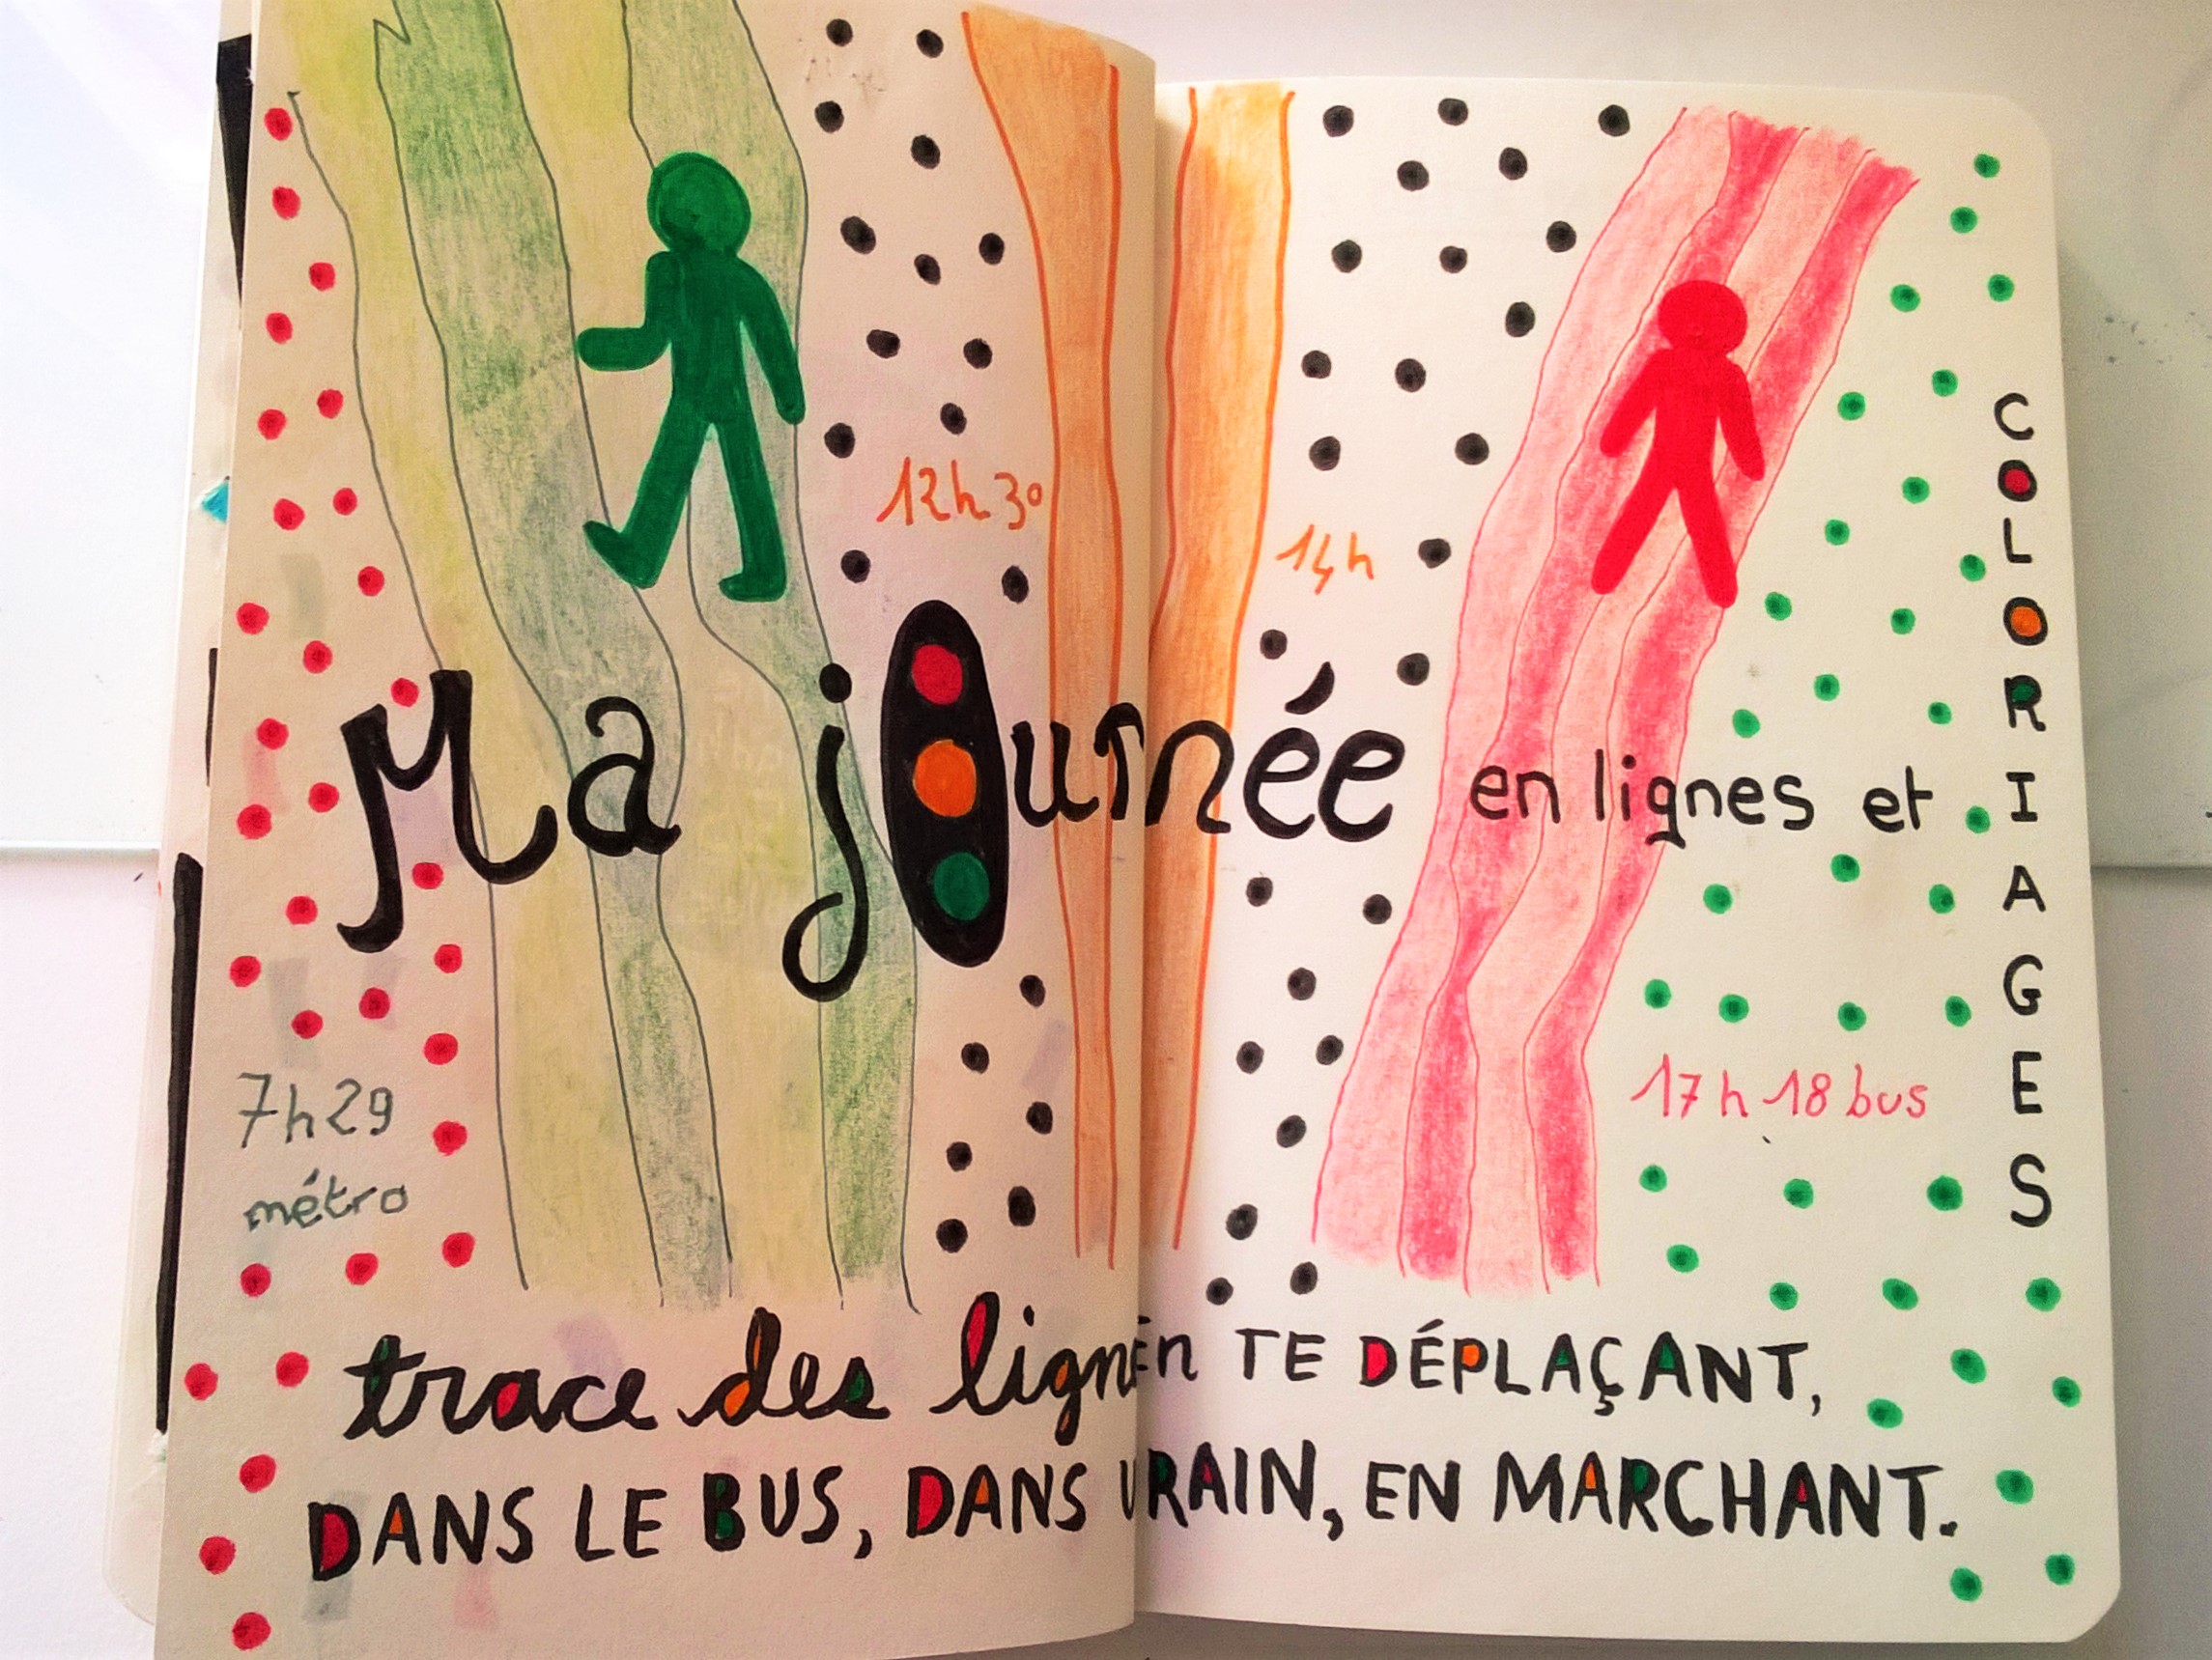 12h30
14h
Ma journée en lignes et
COLORIAGES
7h29
métro
17h18 bus
trace des lign en TE DÉPLAÇANT,
DANS LE BUS, DANS RAIN, EN MARCHANT.